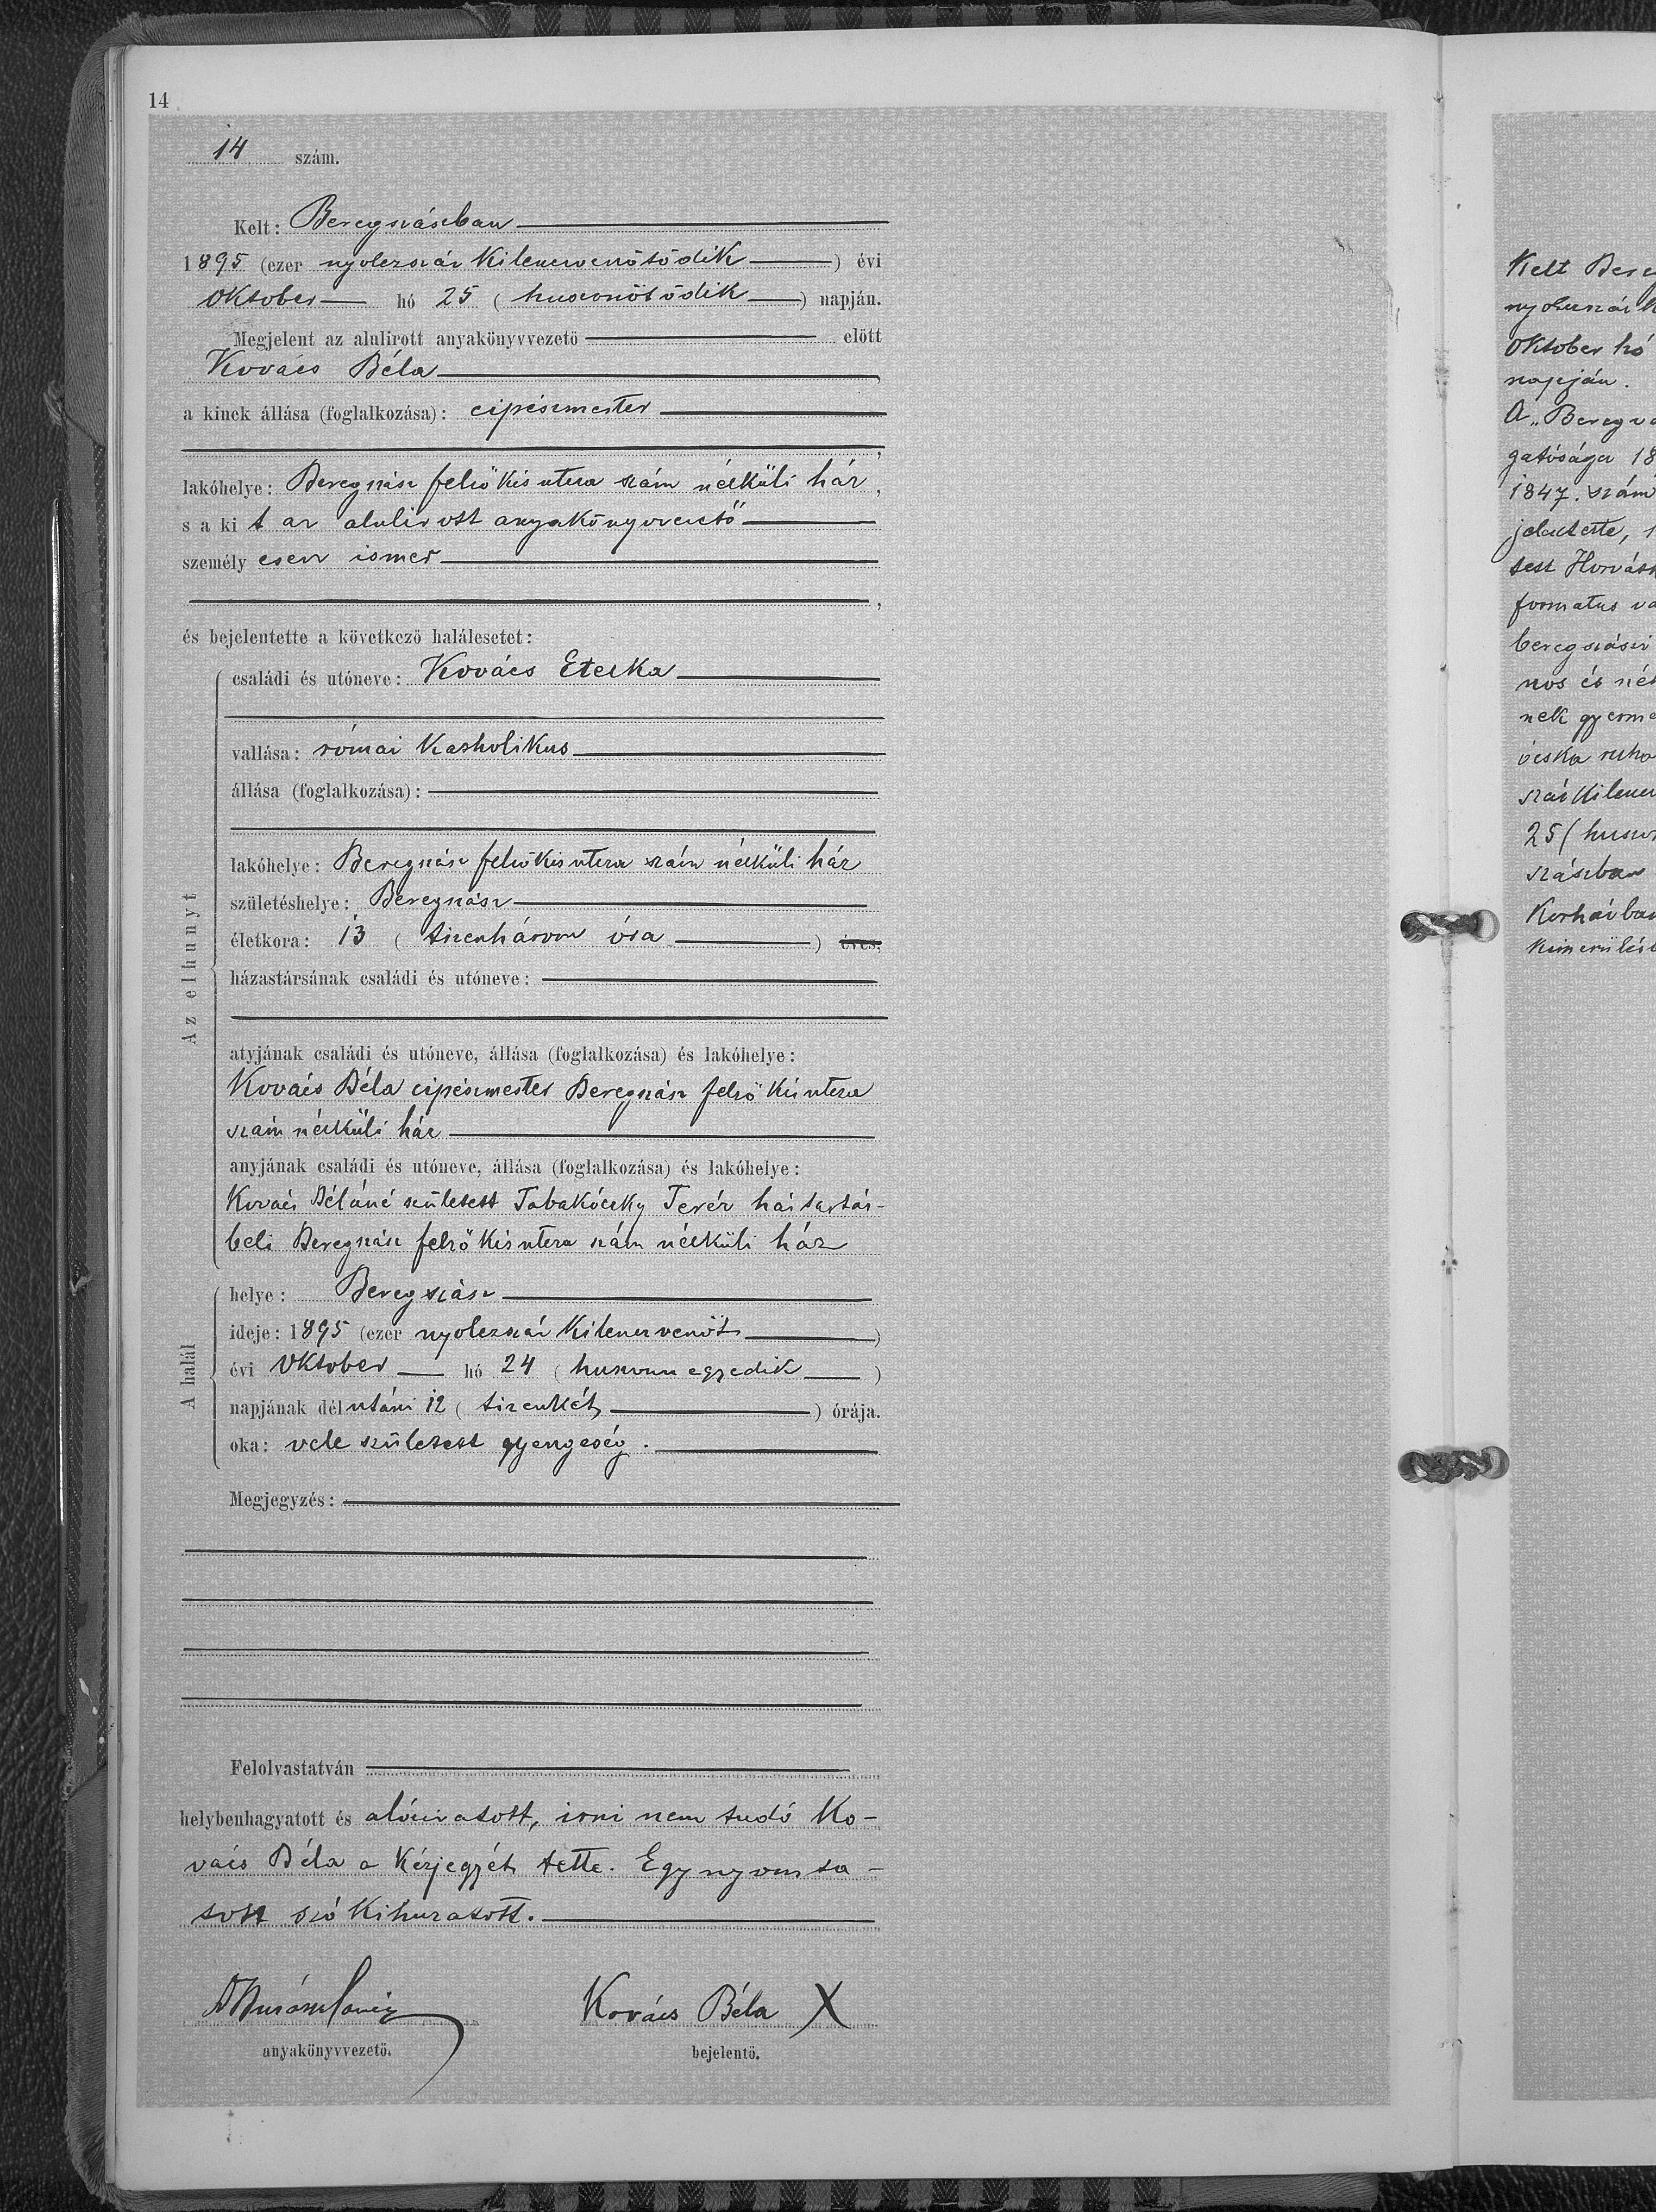 14
14 szám.
Kelt: Beregszászban
1895 (ezer nyolczszáz kilenczvenötödik) évi
Oktober hó 25 (huszonötödik) napján.
Megjelent az alulirott anyakönyvvezető előtt
Kovács Béla,
a kinek állása (foglalkozása): cipészmester
,
lakóhelye: Beregszász felsőkis utcza szám nélküli ház,
s a kit az alulirott anyakönyvvezető
személyesen ismer
,
és bejelentette a következő halálesetet:
Az elhunyt
családi és utóneve: Kovács Etelka
vallása: római katholikus
állása (foglalkozása):
lakóhelye: Beregszász felsőkis utcza szám nélküli ház
születéshelye: Beregszász
életkora: 13 (tizenhárom óra) éves,
házastársának családi és utóneve:
atyjának családi és utóneve, állása (foglalkozása) és lakóhelye:
Kovács Béla cipészmester Beregszász felső kis utcza
szám nélküli ház
anyjának családi és utóneve, állása (foglalkozása) és lakóhelye:
Kovács Béláné született Tabakóczky Teréz háztartás-
beli Beregszász felső kis utcza szám nélküli ház
A halál
helye: Beregszász
ideje: 1895 (ezer nyolczszáz kilenczvenöt)
évi Oktober hó 24 (huszonnegyedik)
napjának délutáni 12 (tizenkét) órája.
oka: vele született gyengeség.
Megjegyzés:
Felolvastatván
helybenhagyatott és alóiratott, irni nem tudó Ko-
vács Béla a kézjegyét tette. Egy nyomta-
tott szó kihuzatott.
Kovács Béla X
anyakönyvvezető. bejelentő.
Kelt Bereg
nyolczszáz k
Oktober hó
napján.
A „Beregvá
gatósága 18
1847. szám
jelentette,
tett Horváth
formatus va
beregszászi
nos és né
nek gyerme
ócska ruha
száz kilencz
25 (huszo
szászban
Korházban
kimerülés